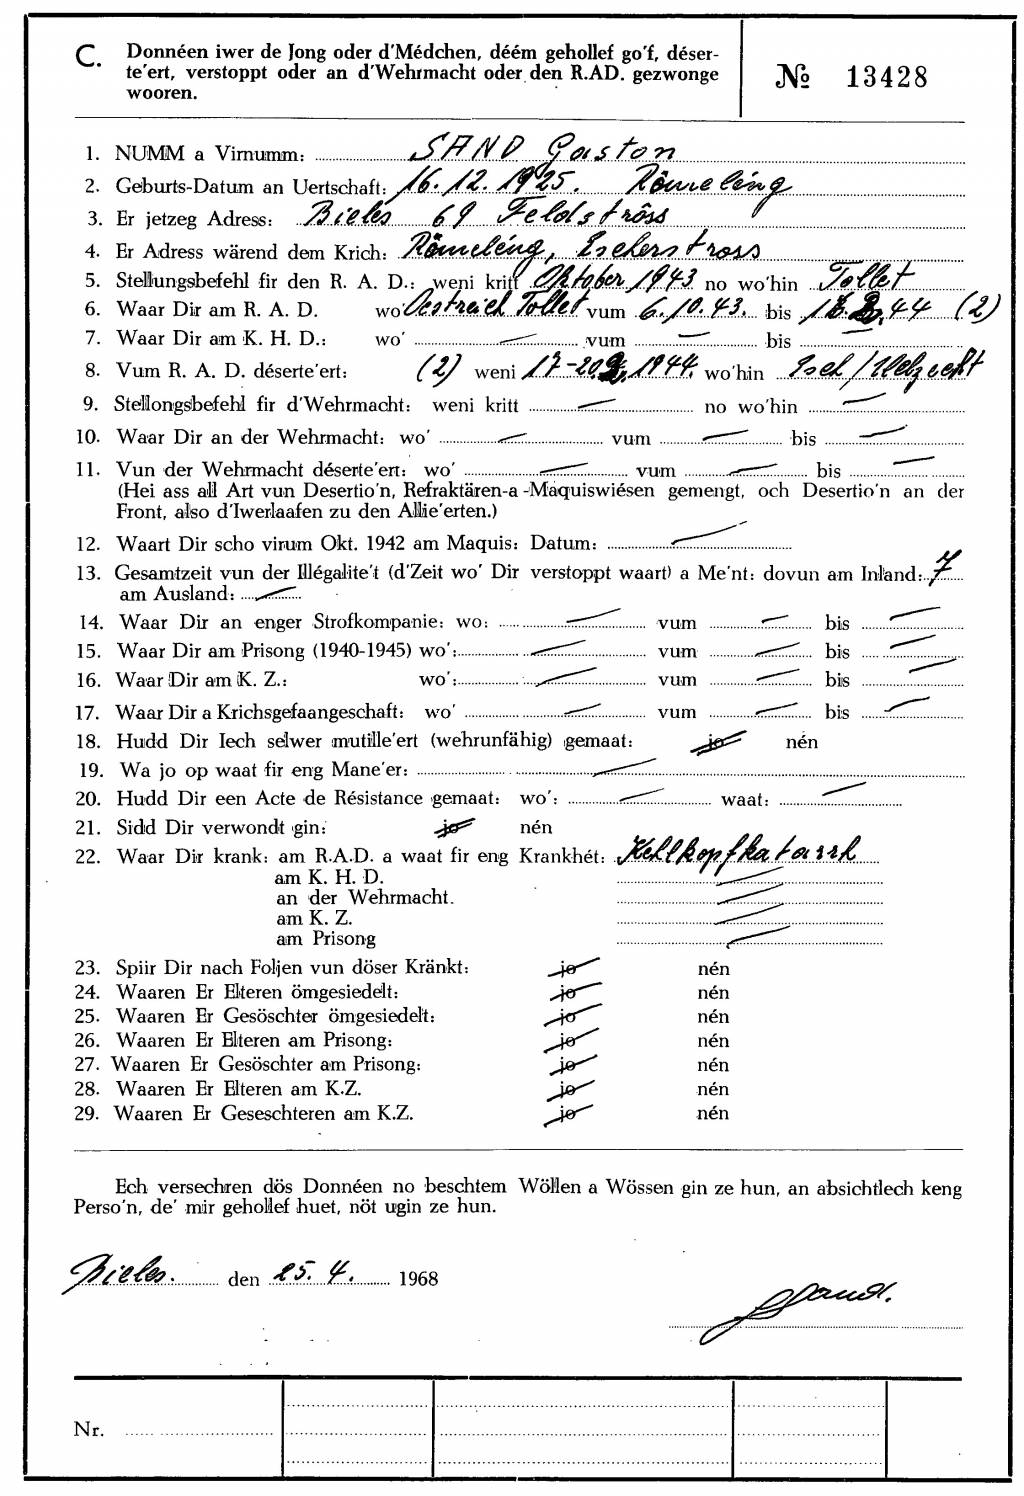 C. Donnéen iwer de Jong oder d'Médchen, déém gehollef go'f, déser-
te'ert, verstoppt oder an d'Wehrmacht oder den R.AD. gezwonge
wooren.
№ 13428
1. NUMM a Virnumm: SAND Gaston
2. Geburts-Datum an Uertschaft: 16.12.1925. Römeléng
3. Er jetzeg Adress: Bieles 69 Feldströss
4. Er Adress wärend dem Krich: Römeléng, Escherstross
5. Stellungsbefehl fir den R. A. D.: weni kritt Oktober 1943 no wo'hin Tollet
6. Waar Dir am R. A. D. wo' Oestreich Tollet vum 6.10.43. bis 44 (2)
7. Waar Dir am K. H. D.: wo' — vum — bis —
8. Vum R. A. D. déserte'ert: (2) weni 17-20. 1944. wo'hin Esch/Uelzecht
9. Stellongsbefehl fir d'Wehrmacht: weni kritt — no wo'hin —
10. Waar Dir an der Wehrmacht: wo' — vum — bis —
11. Vun der Wehrmacht déserte'ert: wo' — vum — bis —
(Hei ass all Art vun Desertio'n, Refraktären-a-Maquiswiésen gemengt, och Desertio'n an der
Front, also d'Iwerlaafen zu den Allie'erten.)
12. Waart Dir scho virum Okt. 1942 am Maquis: Datum: —
13. Gesamtzeit vun der Illégalite't (d'Zeit wo' Dir verstoppt waart) a Me'nt: dovun am Inland: 7
am Ausland: —
14. Waar Dir an enger Strofkompanie: wo: — vum — bis —
15. Waar Dir am Prisong (1940-1945) wo': — vum — bis —
16. Waar Dir am K. Z.: wo': — vum — bis —
17. Waar Dir a Krichsgefaangeschaft: wo' — vum — bis —
18. Hudd Dir Iech selwer mutille'ert (wehrunfähig) gemaat: jo nén
19. Wa jo op waat fir eng Mane'er: —
20. Hudd Dir een Acte de Résistance gemaat: wo': — waat: —
21. Sidd Dir verwondt gin: jo nén
22. Waar Dir krank: am R.A.D. a waat fir eng Krankhét: Kehlkopfkatarrh
am K. H. D. —
an der Wehrmacht. —
am K. Z. —
am Prisong —
23. Spiir Dir nach Foljen vun döser Kränkt: jo nén
24. Waaren Er Elteren ömgesiedelt: jo nén
25. Waaren Er Gesöschter ömgesiedelt: jo nén
26. Waaren Er Elteren am Prisong: jo nén
27. Waaren Er Gesöschter am Prisong: jo nén
28. Waaren Er Elteren am K.Z. jo nén
29. Waaren Er Geseschteren am K.Z. jo nén
Ech versechren dös Donnéen no beschtem Wöllen a Wössen gin ze hun, an absichtlech keng
Perso'n, de' mir gehollef huet, nöt ugin ze hun.
Bieles. den 25. 4. 1968
Sand.
Nr.